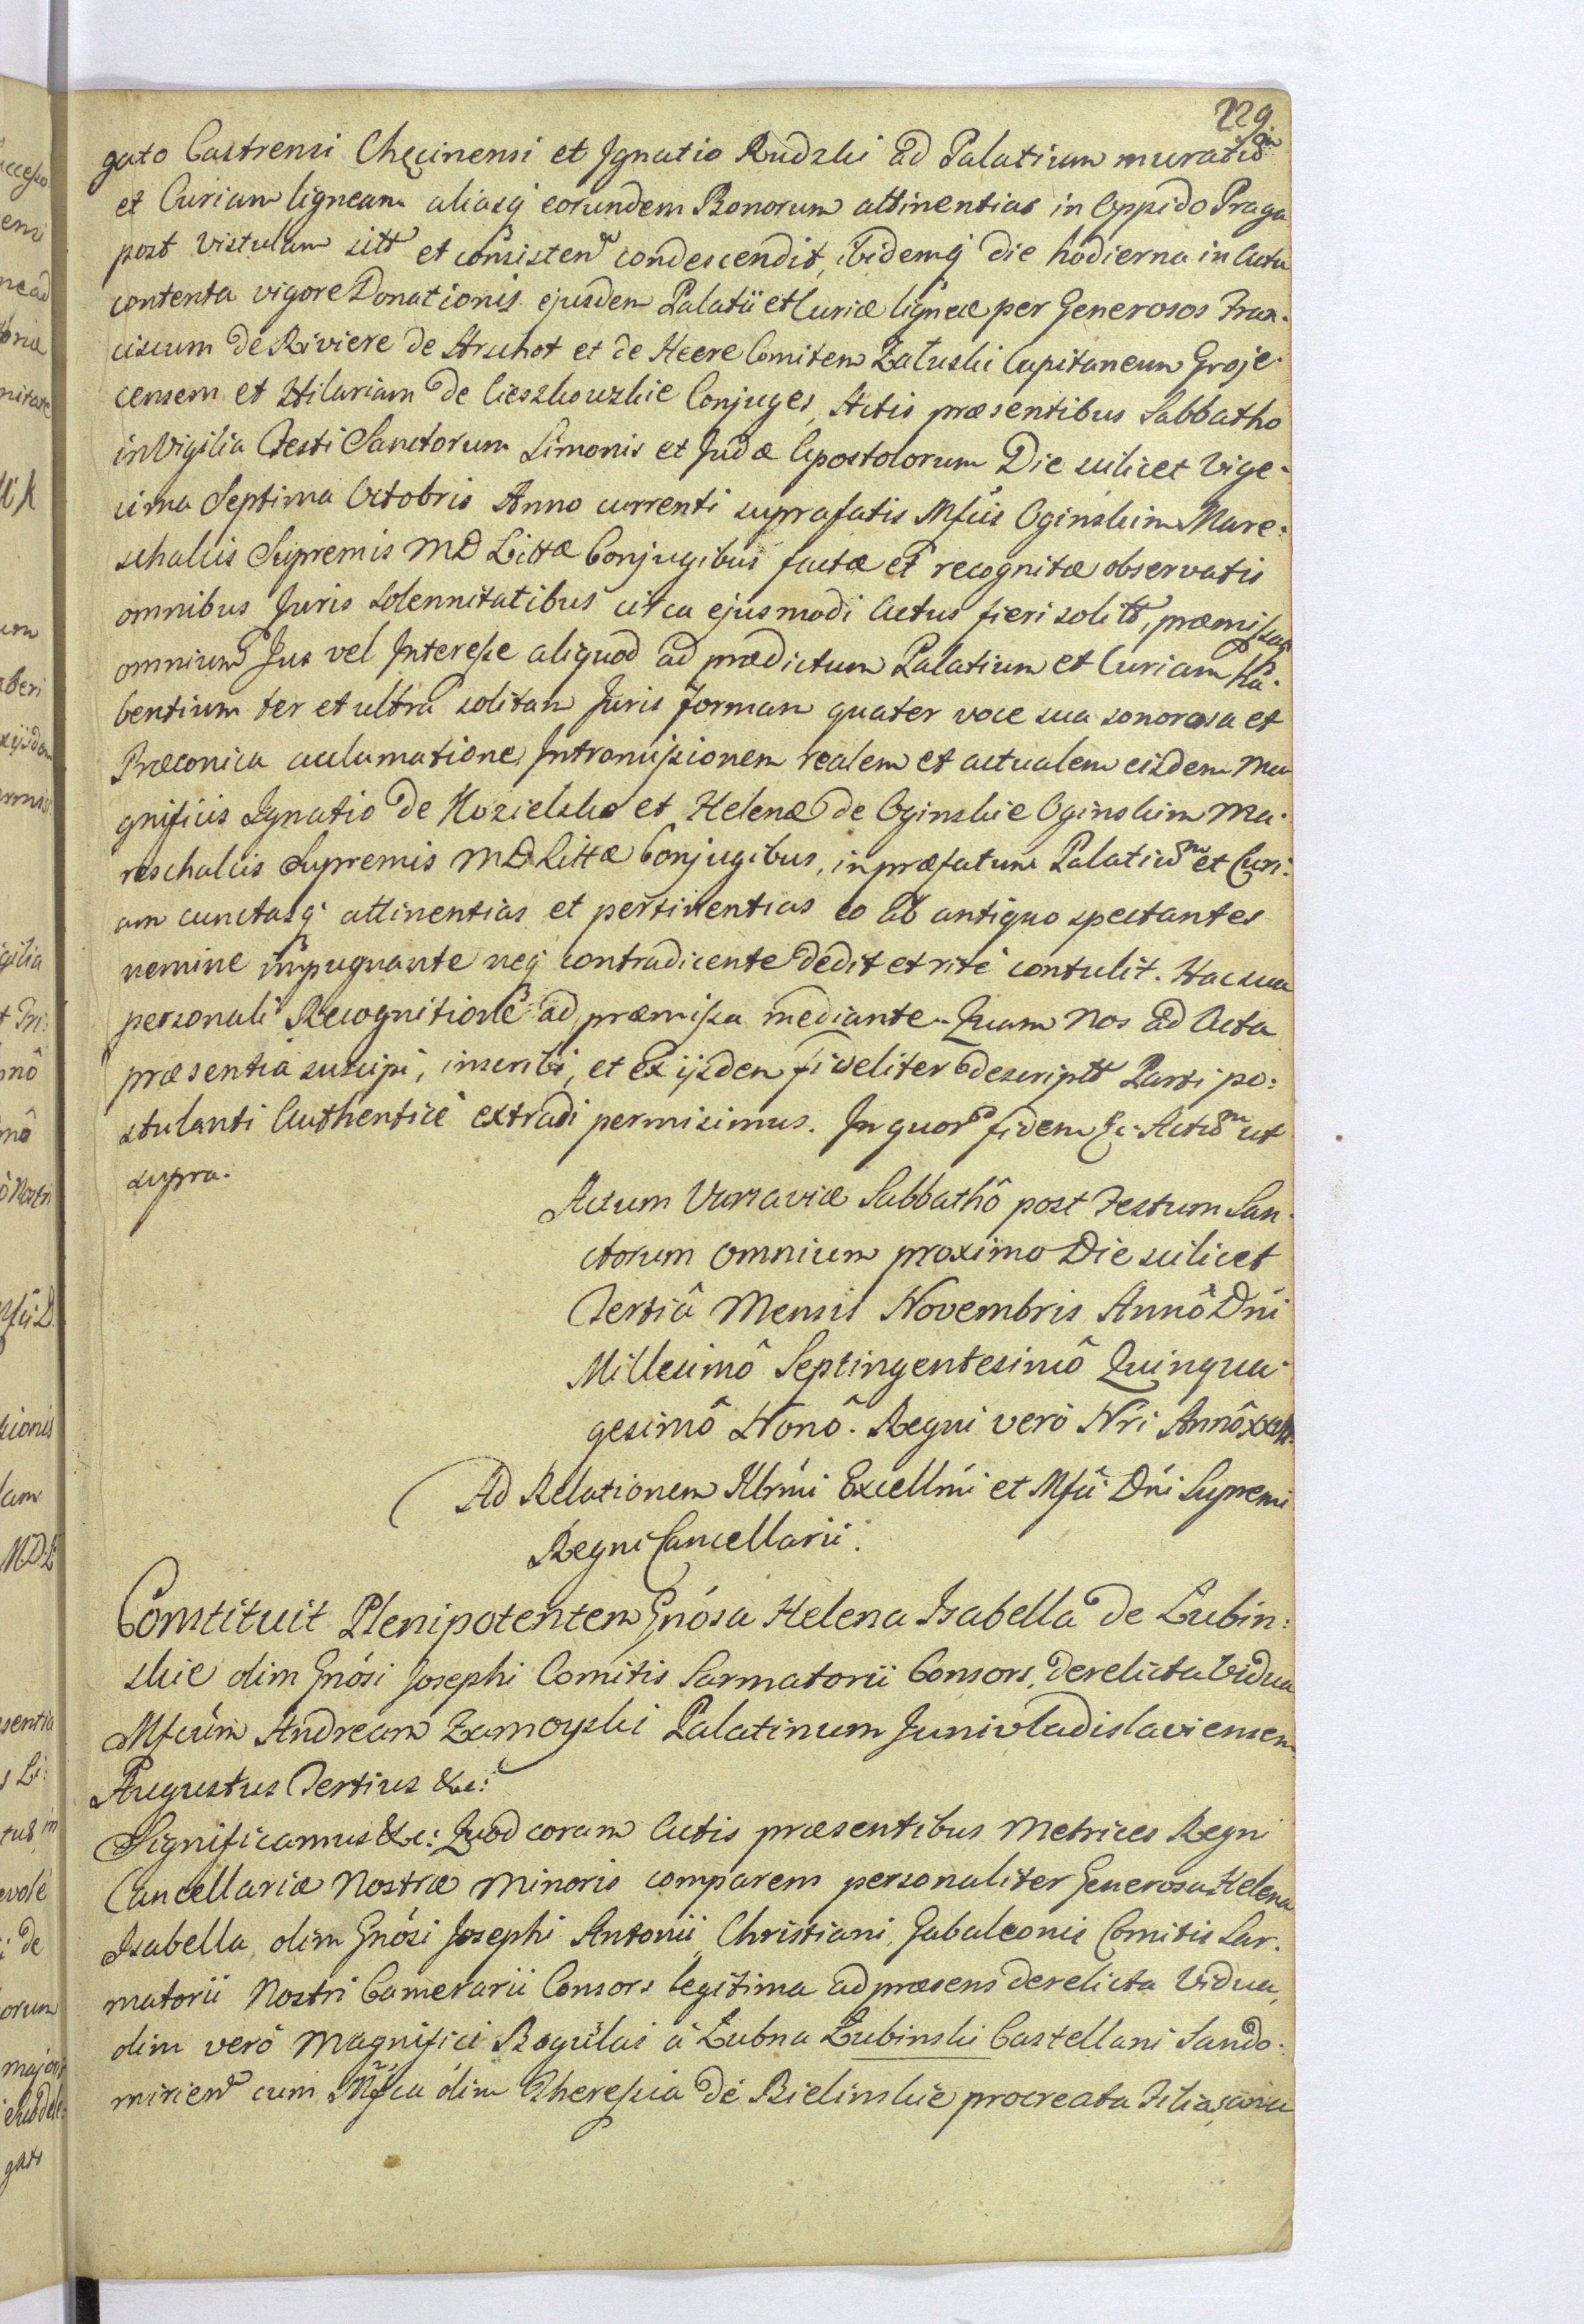 229
gato Castrensi Chęcinensi et Ignatio Rudzki ad Palatium muratũm
et Curiam ligneam aliasq̨ eorundem Bonorum attinentias in Oppido Praga
post Vistulam sitt et consisten condescendit, ibidemq̨ die hodierna in Actu
contenta vigore Donationis ejusdem Palatii et Curiæ ligneæ per Generosos Fran-
ciscum de Riviere de Arschot et de Heere Comitem Załuski Capitaneum Groje-
censem et Hilariam de Cieszkowskie Conjuges, Actis præsentibus Sabbatho
in Vigilia Festi Sanctorum Simonis et Judæ Apostolorum Die scilicet Vige-
sima Septima Octobris Anno currenti suprafatis Mfcis Oginskim Mare-
schalcis Supremis MD Littæ Conjugibus factæ et recognitæ observatis
omnibus Juris Solennitatibus circa ejusmodi Actus fieri solitt, præmissaq̨
omnium Jus vel Interesse aliquod ad prædictum Palatium et Curiam Ha-
bentium ter et ultra solitam Juris formam quater voce sua sonorosa et
Præconica acclamatione, Intromissionem realem et actualem eisdem Ma
gnificis Ignatio de Kozielsko et Helenæ de Oginskie Oginskim Ma-
reschalcis Supremis MD Littæ Conjugibus, in præfatum Palatiũm et Curi-
am cunctasq̨ attinentias et pertinentias eo ab antiquo spectantes
nemine impugnante neq̨ contradicente dedit et ritè contulit. Hac sua
personali Recognitione ad præmissa mediante. Quam Nos ad Acta
præsentia suscipi, inscribi, et ex ijsdem fideliter descriptt Parti po-
stulanti Authenticè extradi permisimus. In quor fidem &c. Actũm ut
supra.
Actum Varsaviæ Sabbathô post Festum San-
ctorum omnium proximo Die scilicet
Tertiâ Mensis Novembris Annô Dni
Millesimô Septingentesimô Quinqua-
gesimô Nonô. Regni verò Nri Annô
Ad Relationem Illrmi Excellmi et Mfci Dni Supremi
Regni Cancellarii.
Constituit Plenipotentem Gnosa Helena Isabella de Łubin-
skie olim Gnosi Josephi Comitis Sarmatorii Consors, derelicta Vidua
Mfcum Andream Zamoyski Palatinum Junivladislaviensem
Augustus Tertius &c:
Significamus &c: Quod coram Actis præsentibus Metrices Regni
Cancellariæ Nostræ Minoris comparens personaliter Generosa Helena
Isabella, olim Gnosi Josephi Antonii, Christiani, Gabaleonis Comitis Sar-
matorii Nostri Camerarii Consors legitima ad præsens derelicta Vidua,
olim verò Magnifici Bogulai à Łubna Łubinski Castellani Sando-
mirien cum Mfca olim Theressia de Bielinskie procreata Filia, sana